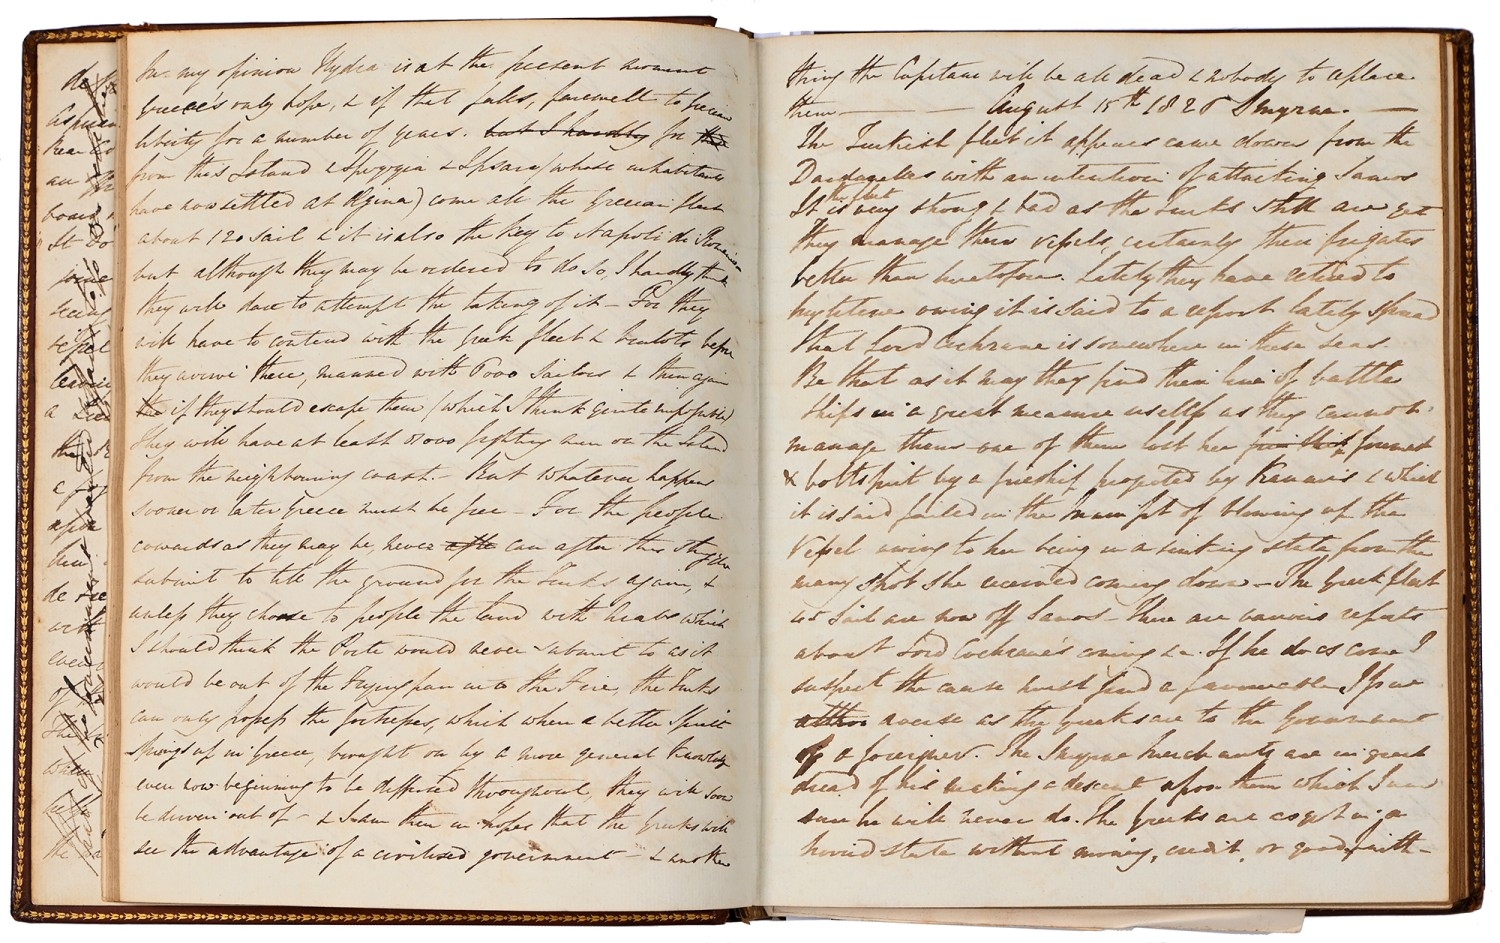 In my opinion Hydra is at the present moment
Greece's only hope, & if that falls, farewell to Grecian
liberty for a number of years. but I hardly for
from this Island & Spezzia & Ipsara (whose inhabitants
have now settled at Egina) come all the Grecian fleet
about 120 sail & it is also the key to Napoli di Romania
but although they may be ordered to do so, I hardly think
they will dare to attempt the taking of it – For they
will have to contend with the Greek fleet & brulots before
they arrive there, manned with sailors & then again
if they should escape them (which I think quite improbable)
they will have at least 8000 fighting men on the Island
from the neighbouring coast. – But whatever happens
sooner or later Greece must be free – For the people
cowards as they may be, never can after this struggle
submit to till the ground for the Turks again, &
unless they choose to people the land with which
I should think the Porte would never submit to as it
would be out of the Frying pan into the Fire, the Turks
can only possess the fortresses, which when a better Spirit
springs up in Greece, brought on by a more general knowledge
even now beginning to be diffused throughout, they will soon
be driven out of – & I am then in hopes that the Greeks will
see the advantage of a civilised government – & another
thing the Capitani will be all dead & nobody to replace
them — August 15th 1826 Smyrna. —
The Turkish fleet it appears came down from the
Dardanelles with an intention of attacking Samos
the fleet
It is very strong & bad as the Turks still are yet
they manage their vessels, certainly their frigates
better than heretofore. Lately they have retired to
Mytilene owing it is said to a report lately spread
that Lord Cochrane is somewhere in these seas.
Be that as it may they find their line of battle
ships in a great measure useless as they cannot
manage them one of them lost her foremast
& boltsprit by a fireship projected by Kanaris & which
it is said failed in the attempt of blowing up the
Vessel owing to her being in a sinking state from the
many shot she received coming down – The Greek fleet
45 Sail are now off Samos – There are various reports
about Lord Cochrane's coming &c. If he does come I
suspect the cause must find a favourable
averse as the Greeks are to the Government
of a foreigner. The Smyrna Merchants are in great
dread of his making a descent upon them which I am
sure he will never do. The Greeks are as yet in a
horrid state without money, credit, or good faith –